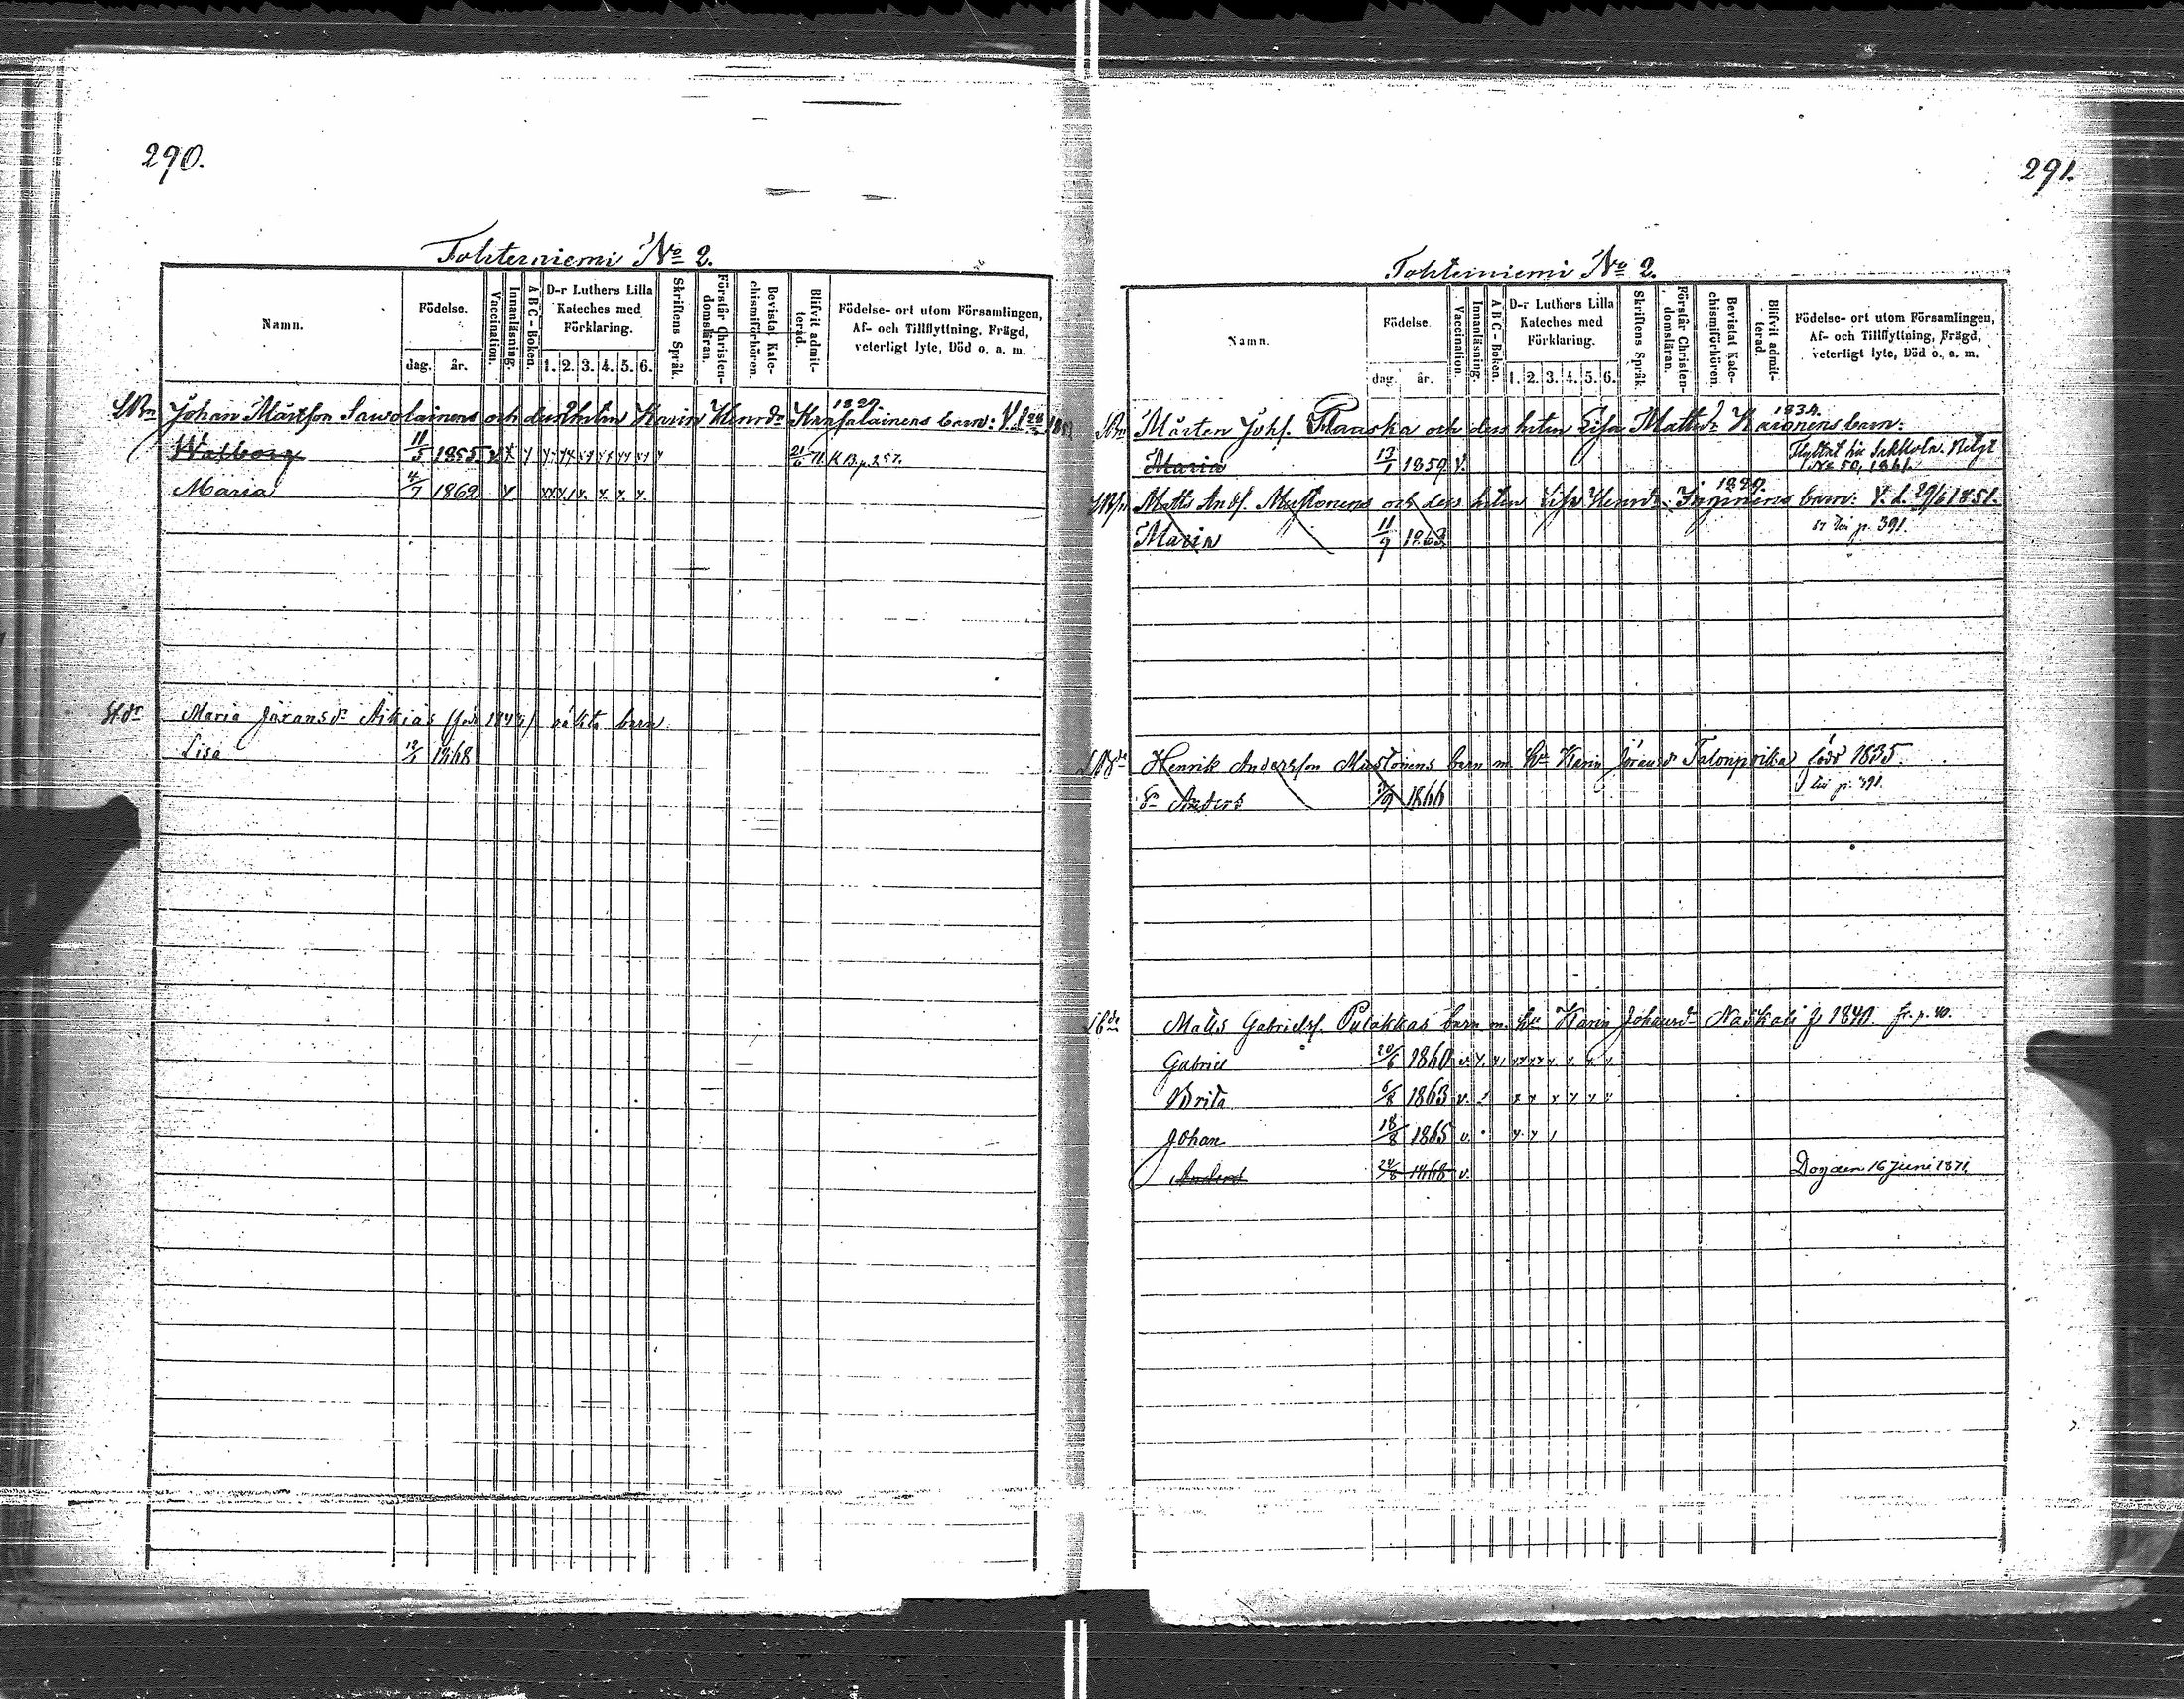 290.
Tohterniemi No 2.
Namn.
Födelse.
dag.
år.
Vaccination.
Innanläsning.
A B C - Boken.
D-r Luthers Lilla
Kateches med
Förklaring.
1. 2. 3. 4. 5. 6.
Skriftens Språk.
Förstår Christen-
domsläran.
Bevistat Kate-
chismiförhören.
Blifvit admit-
terad.
Födelse- ort utom Församlingen,
Af- och Tillflyttning, Frägd,
veterligt lyte, Död o. a. m.
Johan Mårtsson Sawolainens och dess hustru Karin Henrdr 1829 barn:
Walborg 11/5 1855 21/6 71. K B. p. 257.
Maria 4/7 1862
Maria Göransdr Äikiäs oäkta barn
Lisa 1868
291.
Tohterniemi No 2.
Namn.
Födelse.
dag.
år.
Vaccination.
Innanläsning.
A B C - Boken.
D-r Luthers Lilla
Kateches med
Förklaring.
1. 2. 3. 4. 5. 6.
Skriftens Språk.
Förstår Christen-
domsläran.
Bevistat Kate-
chismiförhören.
Blifvit admit-
terad.
Födelse- ort utom Församlingen,
Af- och Tillflyttning, Frägd,
veterligt lyte, Död o. a. m.
Mårten Johs. och dess hustru Lisa Mattsdr 1834. barn:
Maria 13/1 1859 v.
No 50, 1861.
Matts Ands. Mustonens och dess hustru Lisa Henrdr barn: 29/6 1851.
Maria 11/9 1863 p. 391.
Henrik Andersson Mustonens barn m. hu Karin Göransdr Talonpoika född 1835
Sn Anders 1866 p. 391.
Matts Gabrielss. Pulakkas barn m. hu Karin Johansdr Naskali f 1840. fr. p. 40.
Gabriel 20/6 1860
Brita 6/8 1863 v.
Johan 18/8 1865 v.
Anders 1868 v. Dog den 16 Juni 1871.